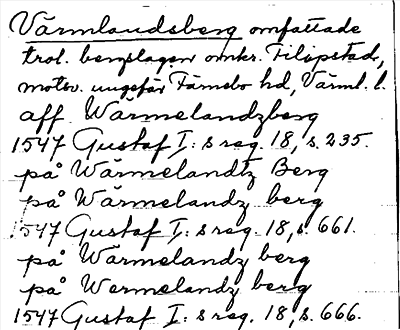 Värmlandsberg omfattade
trol. bergslagen omkr. Filipstad,
motsv. ungefär Färnebo hd, Värml. l.
aff Wärmelandzberg
1547 Gustaf I:s reg. 18, s. 235.
på Wärmelandtz Berg
på Wärmelandz berg
1547 Gustaf I:s reg. 18, s. 661.
på Wärmelandz berg
på Wermelandz berg
1547 Gustaf I:s reg. 18, s. 666.